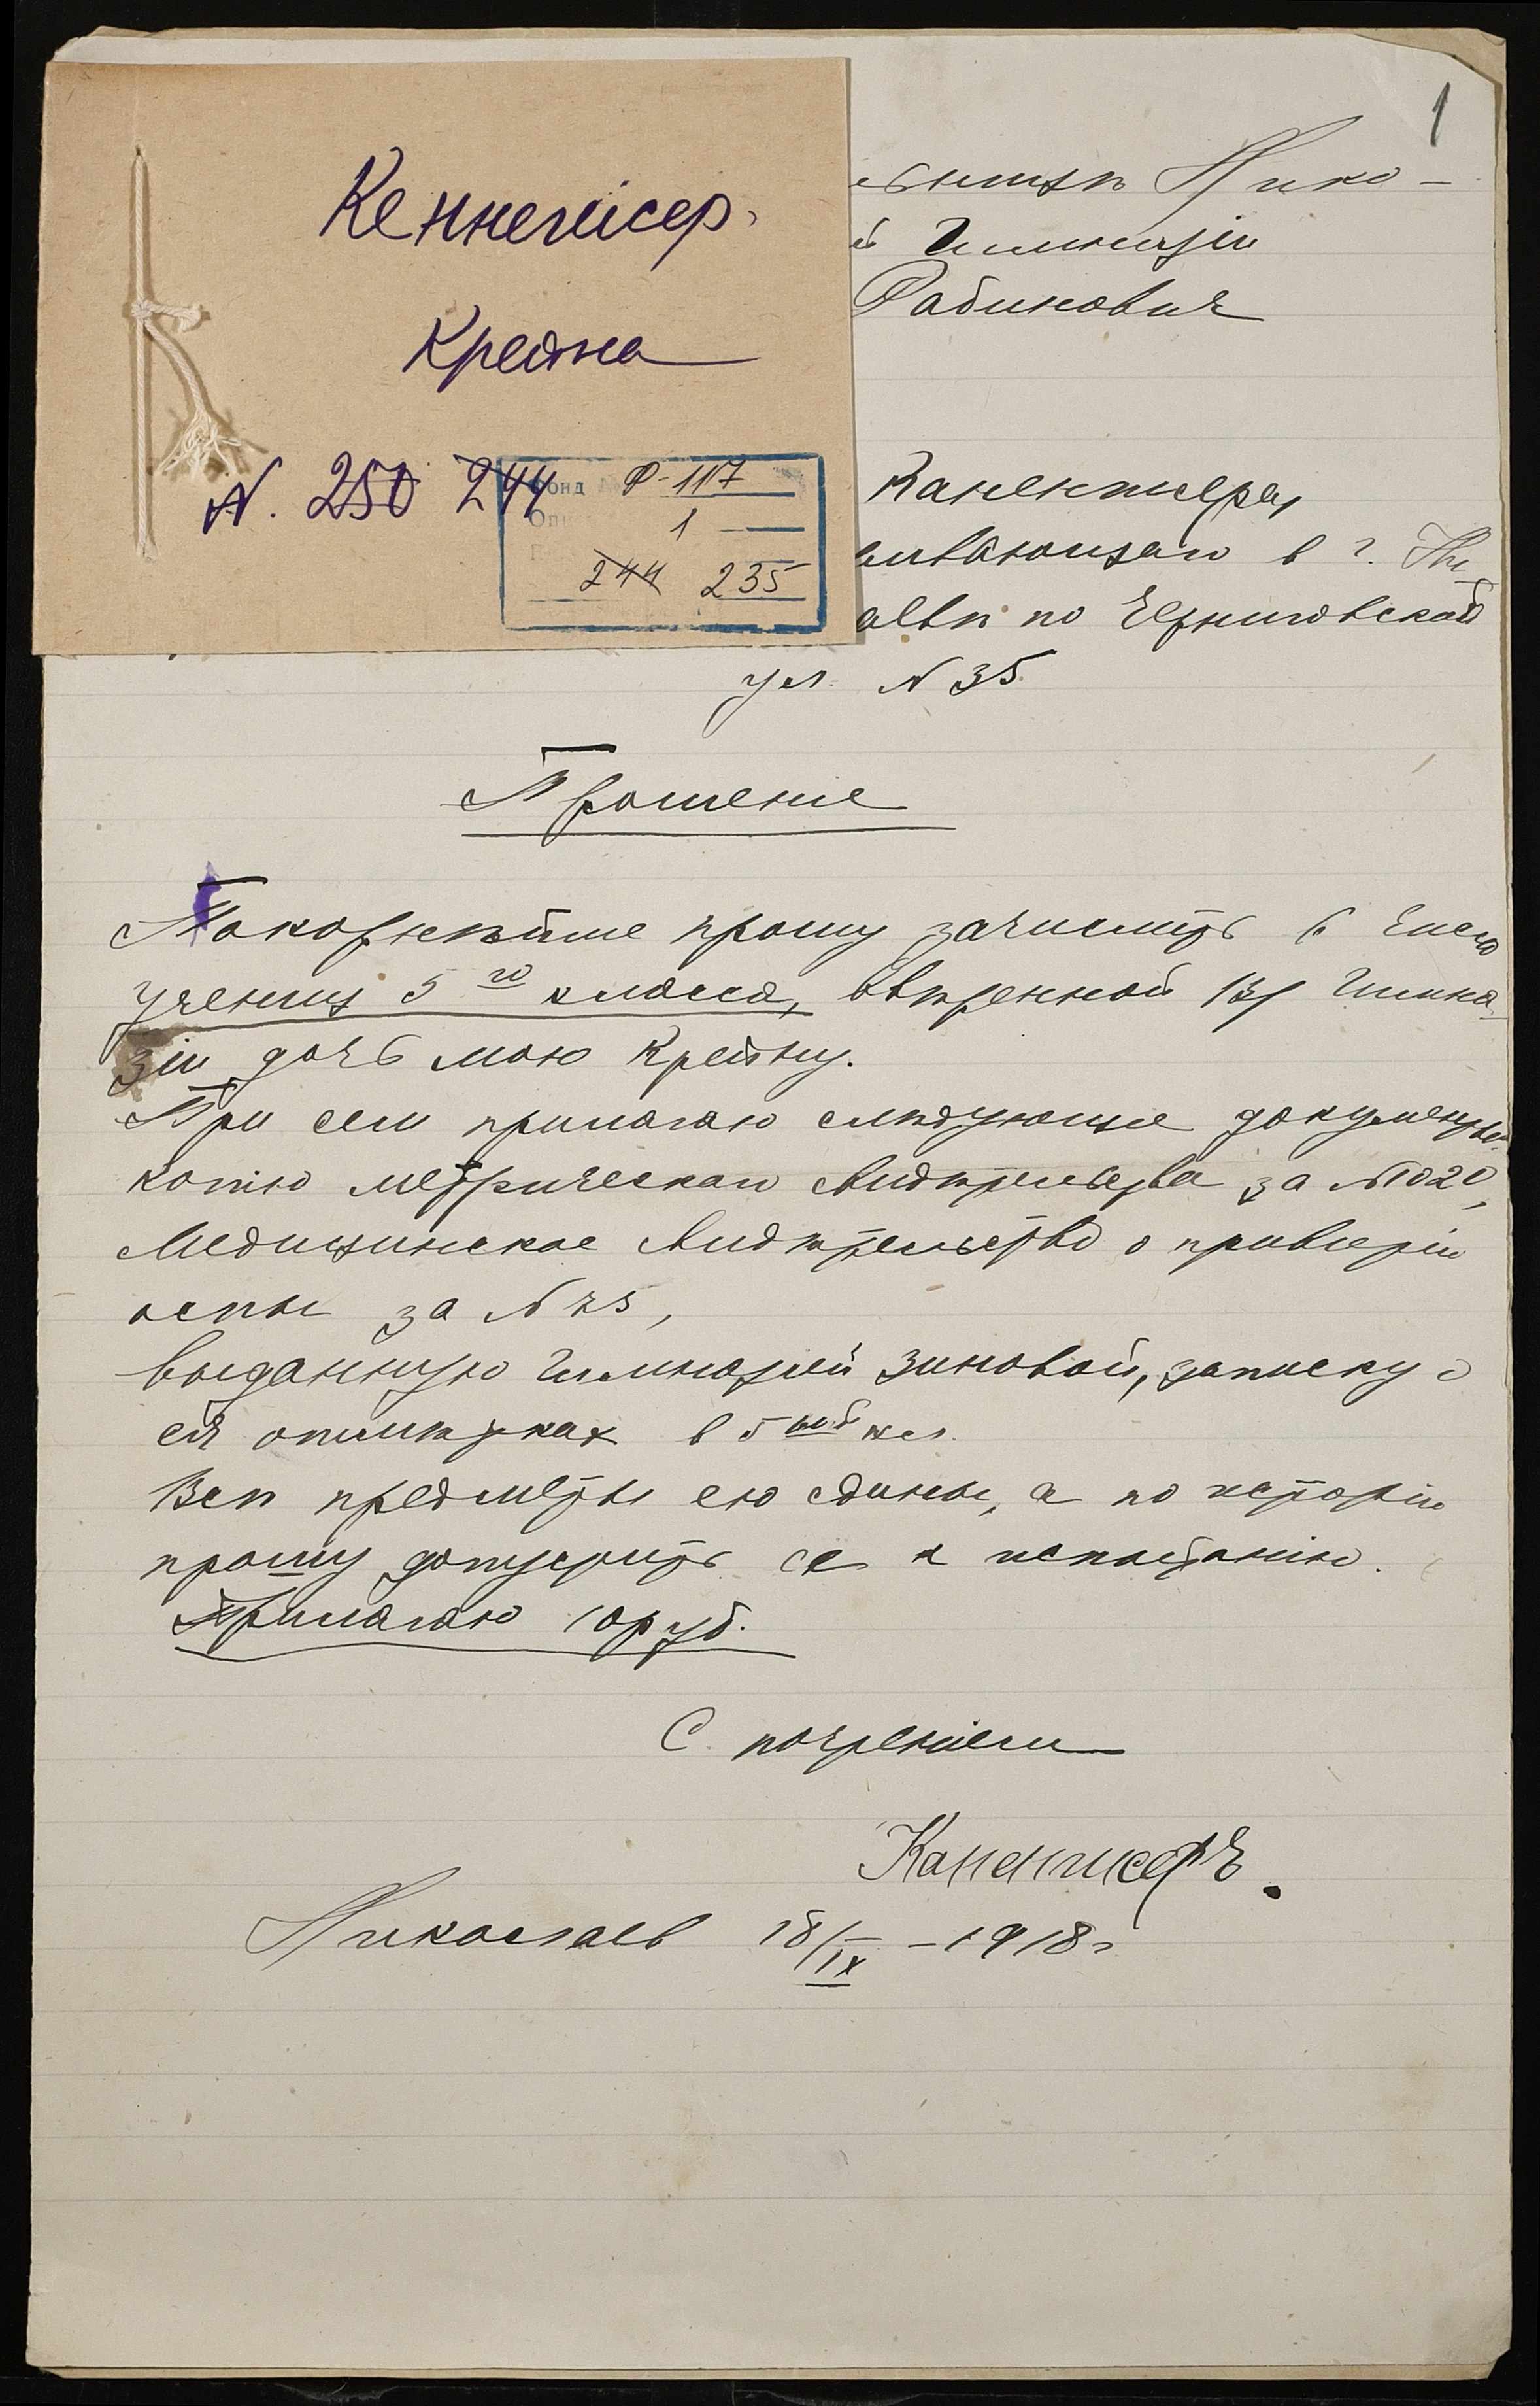 1
Кеннегисер.
Крейна
N. 250 244
Фонд Ф-117
1
244 235
Нико-
й Гимназіи
Рабиновичъ
Каненгисера,
в г. Ни-
по Черниговской
ул. N 35
Прошеніе
Покорнѣйше прошу зачислить в число
учениц 5го класса, ввѣренной Вам Гимна-
зіи дочь мою Крейну.
При сем прилагаю слѣдующіе документы:
копію метрическаго свидѣтельства за N1020,
Медицинское свидѣтельство о привитіи
оспы за N 75,
выданную Гимназіей Зиновой, записку о
ея отмѣтках в 5ый кл.
Всѣ предметы ею сданы, а по исторіи
прошу допустить ее к испытанію.
Прилагаю 10 руб.
С почтеніем
Каненгисеръ.
Николаев 18/IX - 1918 г